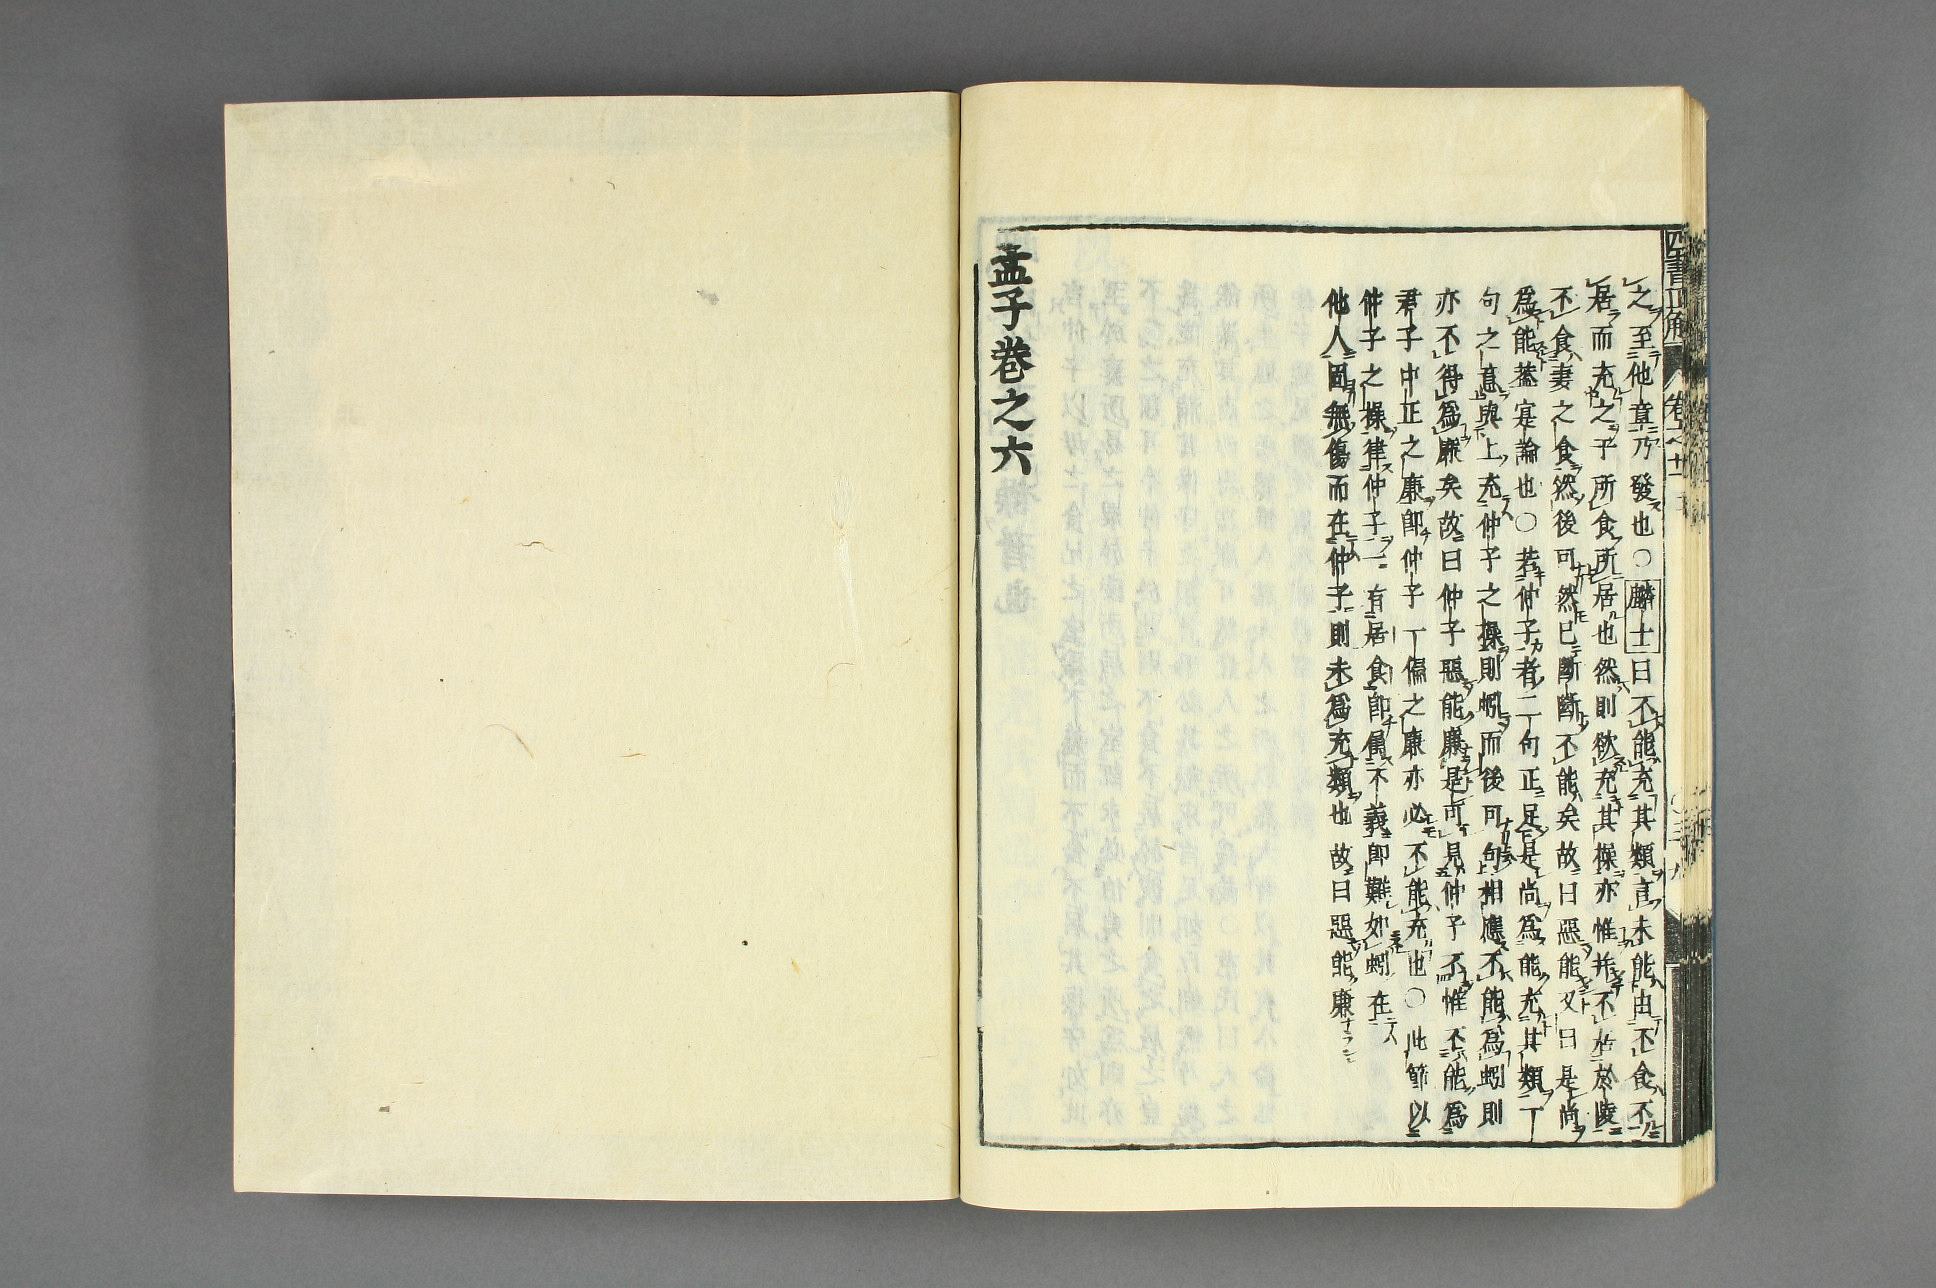 之至他章乃發也○麟士曰不能充其類言未能由不食不
居而充之乎所食所居也然則欲充其操亦惟并不居於陵
不食妻之食然後可然已斷斷不能矣故曰惡能又曰是尚
爲能葢寔論也○若仲子者二句正足是尚爲能充其類一
句之意與上充仲子之操則蚓而後可句相應不能爲蚓則
亦不得爲廉矣故曰仲子惡能廉是可見仲子不惟不能爲
君子中正之廉卽仲子一偏之廉亦必不能充也○此節以
仲子之操律仲子一有居食卽屬不義卽難如蚓在
他人固無傷而在仲子則未爲充類也故曰惡能廉
孟子巻之六